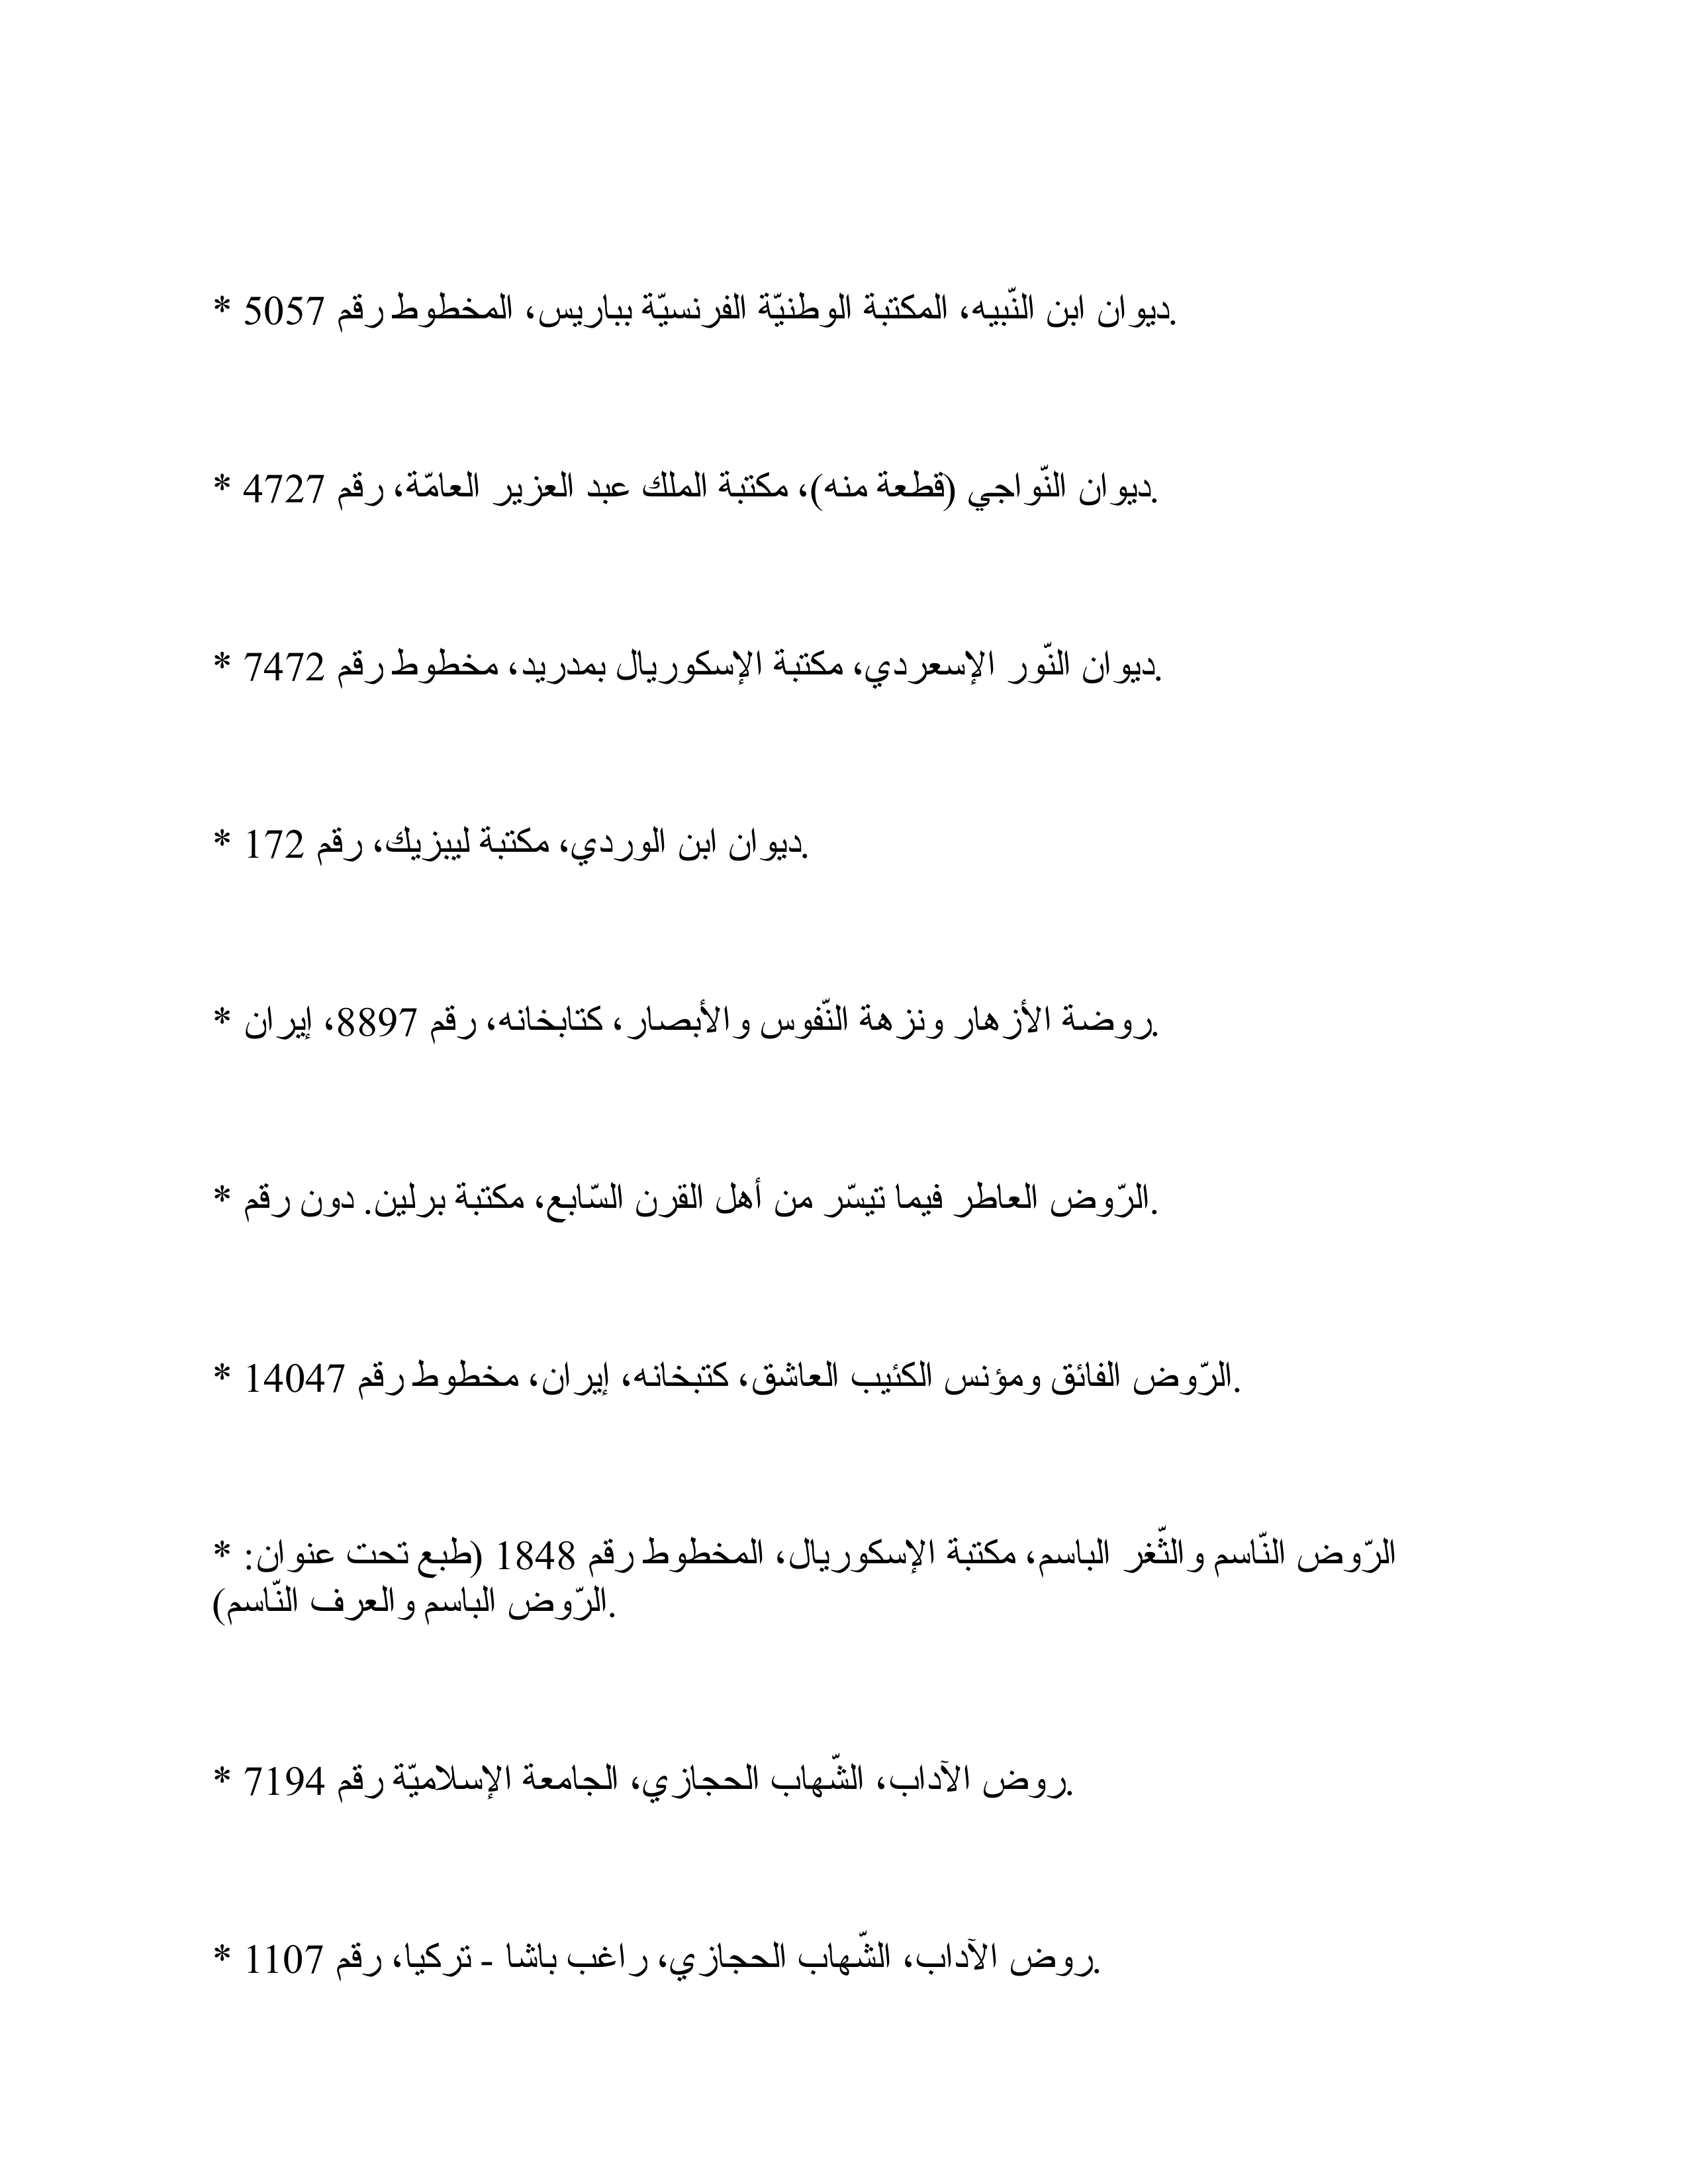 * ديوان ابن النّبيه، المكتبة الوطنيّة الفرنسيّة بباريس، المخطوط رقم 5057.
* ديوان النّواجي (قطعة منه)، مكتبة الملك عبد العزير العامّة، رقم 4727.
* ديوان النّور الإسعردي، مكتبة الإسكوريال بمدريد، مخطوط رقم 7472.
* ديوان ابن الوردي، مكتبة ليبزيك، رقم 172.
* روضة الأزهار ونزهة النّفوس والأبصار، كتابخانه، رقم 8897، إيران.
* الرّوض العاطر فيما تيسّر من أهل القرن السّابع، مكتبة برلين. دون رقم.
* الرّوض الفائق ومؤنس الكئيب العاشق، كتبخانه، إيران، مخطوط رقم 14047.
* الرّوض النّاسم والثّغر الباسم، مكتبة الإسكوريال، المخطوط رقم 1848 (طبع تحت عنوان:
الرّوض الباسم والعرف النّاسم).
* روض الآداب، الشّهاب الحجازي، الجامعة الإسلاميّة رقم 7194.
* روض الآداب، الشّهاب الحجازي، راغب باشا - تركيا، رقم 1107.